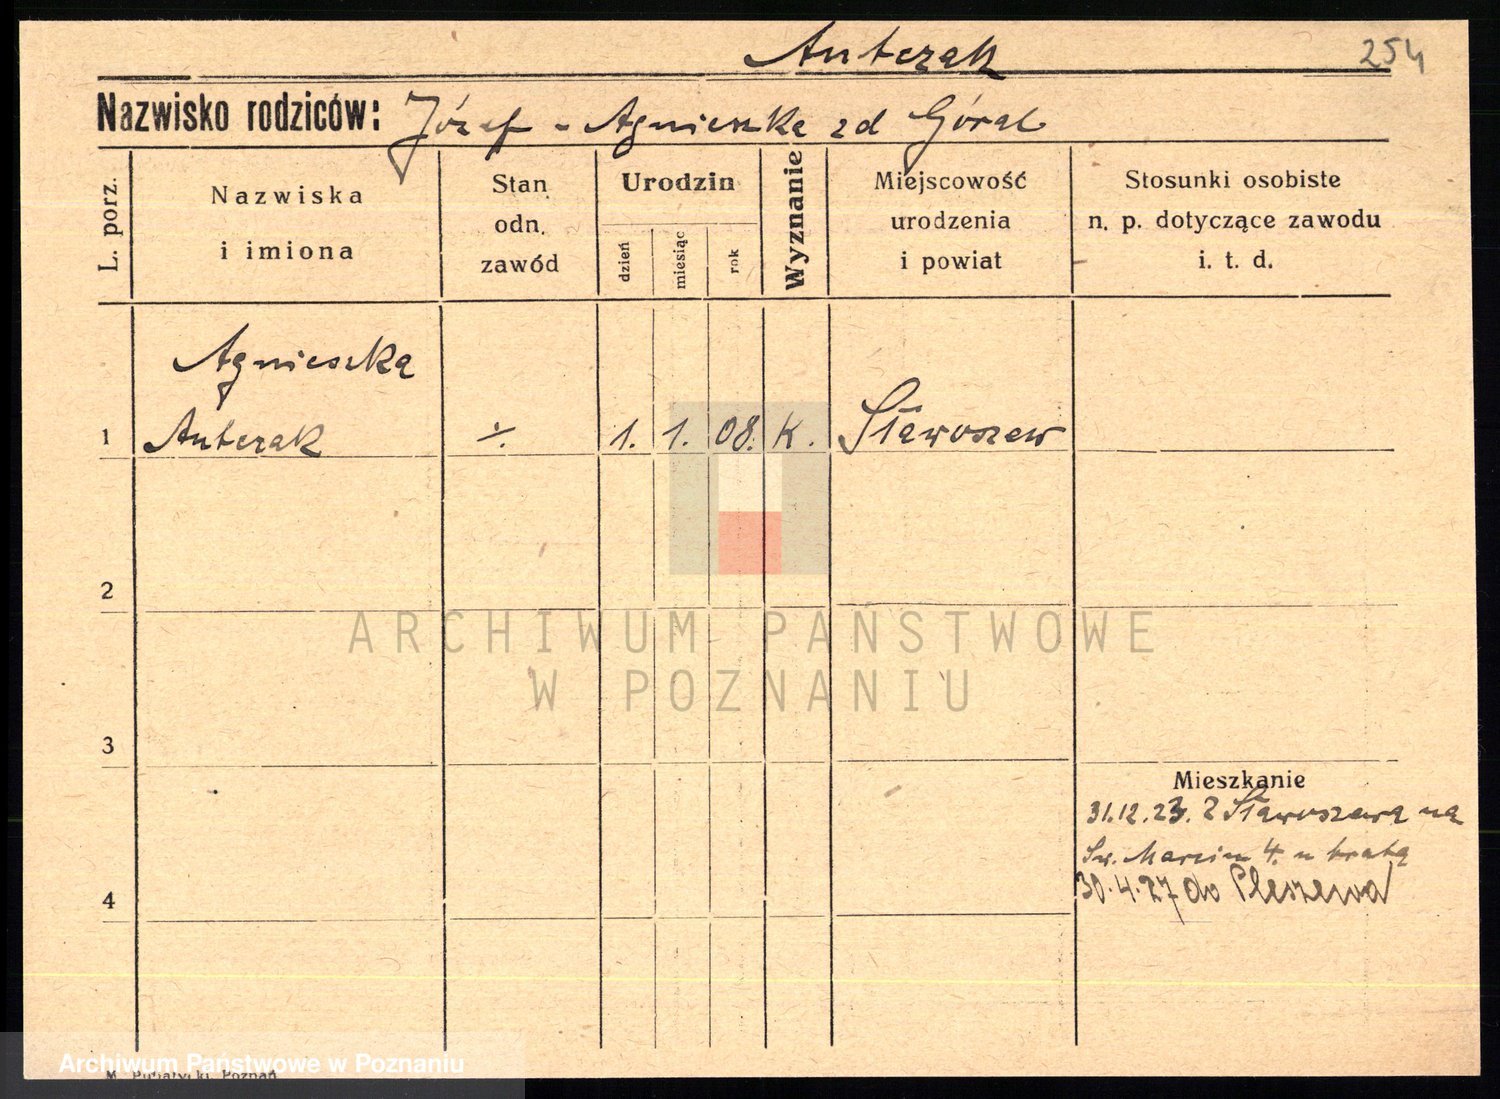 Antczak
254
Nazwisko rodziców: Józef - Agnieszka zd Góral
L. porz.
Nazwiska
i imiona
Stan
odn.
zawód
Urodzin
dzień
miesiąc
rok
Wyznanie
Miejscowość
urodzenia
i powiat
Stosunki osobiste
n. p. dotyczące zawodu
i. t. d.
Agnieszka
1 Antczak ÷ 1. 1. 08. K. Sławoszew
2
ARCHIWUM PAŃSTWOWE
W POZNANIU
3
Mieszkanie
31.12.23. z Sławoszewa na
Św. Marcin 4. u brata
4
30.4.27 do Pleszewa
Archiwum Państwowe w Poznaniu
M. Poznań